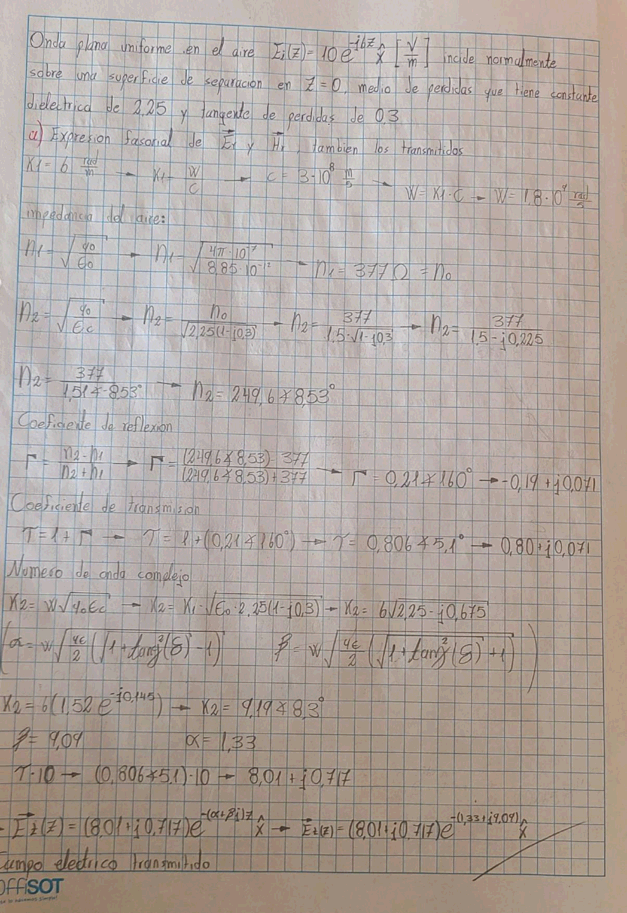 Onda plana uniforme en el aire Ei(z) = 10e^-j6z x̂ [V/m] incide normalmente
sobre una superficie de separacion en z=0, medio de perdidas que tiene constante
dielectrica de 2,25 y tangente de perdidas de 0,3
a) Expresion fasorial de E⃗r y H⃗r, tambien los transmitidos
K1 = 6 rad/m → K1 = W/C → C = 3·10^8 m/s → W = K1·C → W = 1,8·10^9 rad/s
impedancia del aire:
η1 = √(μ0/ε0) → η1 = √(4π·10^-7/8,85·10^-12) → η1 = 377Ω = η0
η2 = √(μ0/εc) → η2 = η0/√(2,25(1-j0,3)) → η2 = 377/(1,5·√(1-j0,3)) → η2 = 377/(1,5-j0,225)
η2 = 377/(1,51∡-8,53°) → η2 = 249,6∡8,53°
Coeficiente de reflexion
Γ = (η2-η1)/(η2+η1) → Γ = ((249,6∡8,53)-377)/((249,6∡8,53)+377) → Γ = 0,21∡160° → -0,19+j0,071
Coeficiente de transmision
τ = 1+Γ → τ = 1+(0,21∡160°) → τ = 0,806∡5,1° → 0,80+j0,071
Numero de onda complejo
K2 = W√(μ0εc) → K2 = K1·√(ε0·2,25(1-j0,3)) → K2 = 6√(2,25-j0,675)
(α = W√(με/2 (√(1+tang²(δ)) -1)) β = W√(με/2 (√(1+tang²(δ)) +1)))
K2 = 6(1,52 e^-j0,145) → K2 = 9,19∡8,3°
β = 9,09 α = 1,33
τ·10 → (0,806∡5,1)·10 → 8,01+j0,717
- E⃗t(z) = (8,01+j0,717)e^-(α+βj)z x̂ → E⃗t(z) = (8,01+j0,717)e^-(1,33+j9,09)z x̂
Campo electrico transmitido
OFFISOT